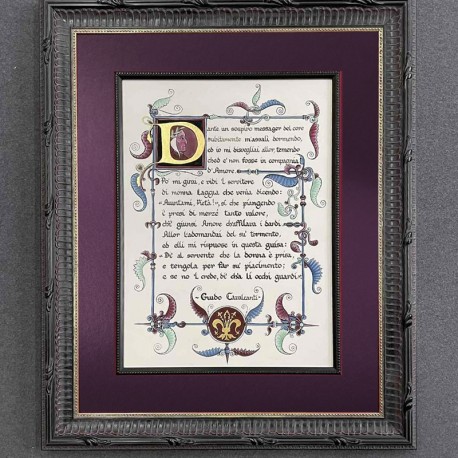 Dante un sospiro messager del core
subitamente m'assalì dormendo,
ed io mi disvegliai allor, temendo
ched e' non fosse in compagnia
d'Amore.
Po' mi girai, e vidi 'l servitore
di monna Laggia che venìa dicendo:
- Auintami, Pietà! -, sì che piangendo
i' presi di merzé tanto valore,
ch'i' giunsi Amore ch'affilava i dardi.
Allor l'adomandai del su' tormento,
ed elli mi rispuose in questa guisa:
- Di' al servente che la donna è prisa,
e tengola per far su' piacimento;
e se no 'l crede, di' ch'a li occhi guardi. -
- Guido Cavalcanti -